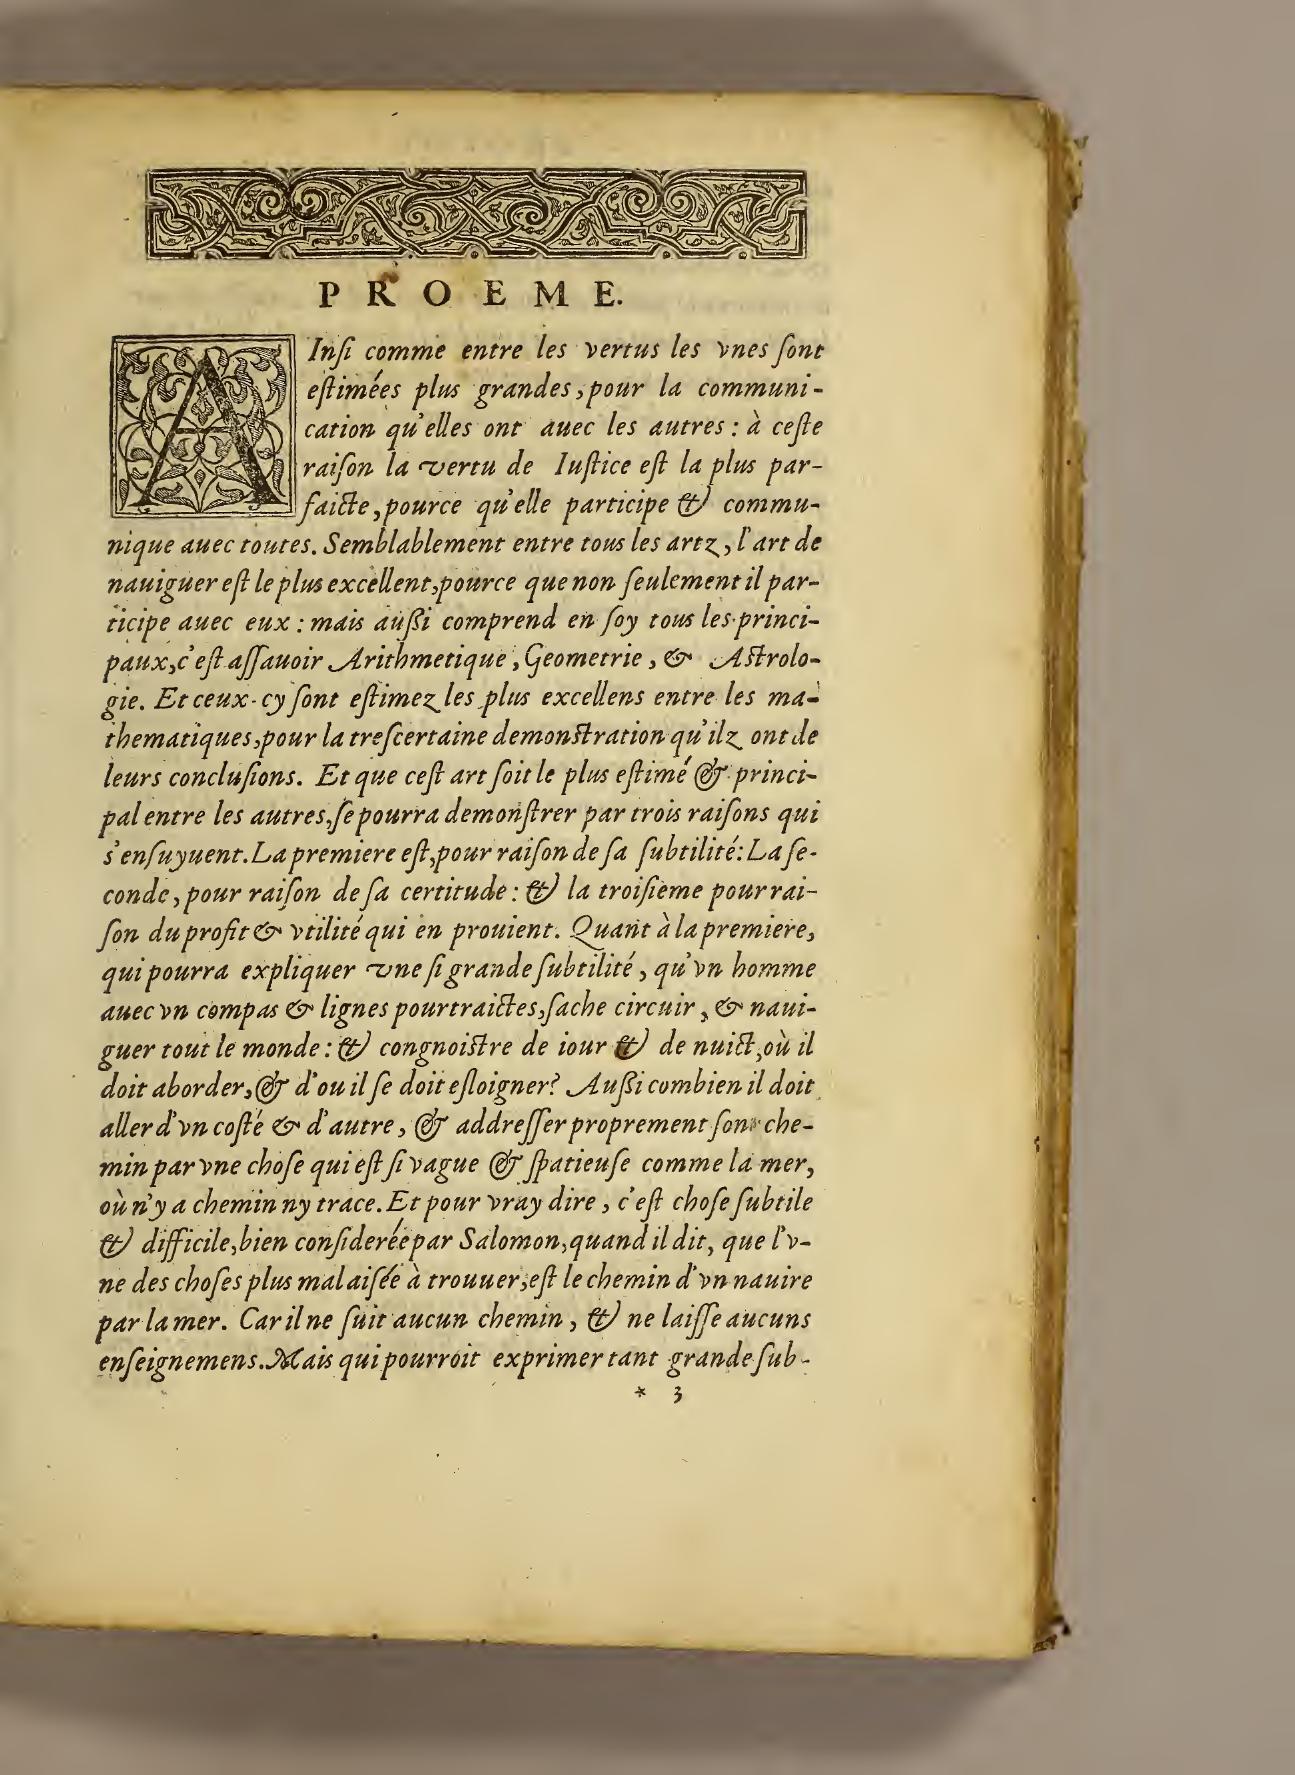 PROEME.
AInſi comme entre les vertus les vnes ſont
eſtimées plus grandes, pour la communi-
cation qu'elles ont auec les autres : à ceſte
raiſon la vertu de Iuſtice eſt la plus par-
faicte, pource qu'elle participe & commu-
nique auec toutes. Semblablement entre tous les artz, l'art de
nauiguer eſt le plus excellent, pource que non ſeulement il par-
ticipe auec eux : mais außi comprend en ſoy tous les princi-
paux, c'eſt aſſauoir Arithmetique, Geometrie, & Aſtrolo-
gie. Et ceux-cy ſont eſtimez les plus excellens entre les ma-
thematiques, pour la treſcertaine demonſtration qu'ilz ont de
leurs concluſions. Et que ceſt art ſoit le plus eſtimé & princi-
pal entre les autres, ſe pourra demonſtrer par trois raiſons qui
s'enſuyuent. La premiere eſt, pour raiſon de ſa ſubtilité: La ſe-
conde, pour raiſon de ſa certitude : & la troiſieme pour rai-
ſon du profit & vtilité qui en prouient. Quant à la premiere,
qui pourra expliquer vne ſi grande ſubtilité, qu'vn homme
auec vn compas & lignes pourtraictes, ſache circuir, & naui-
guer tout le monde : & congnoiſtre de iour & de nuict, où il
doit aborder, & d'ou il ſe doit eſloigner? Außi combien il doit
aller d'vn coſté & d'autre, & addreſſer proprement ſon che-
min par vne choſe qui eſt ſi vague & ſpatieuſe comme la mer,
où n'y a chemin ny trace. Et pour vray dire, c'eſt choſe ſubtile
& difficile, bien conſiderée par Salomon, quand il dit, que l'v-
ne des choſes plus mal aiſée à trouuer, eſt le chemin d'vn nauire
par la mer. Car il ne ſuit aucun chemin, & ne laiſſe aucuns
enſeignemens. Mais qui pourroit exprimer tant grande ſub-
* 3